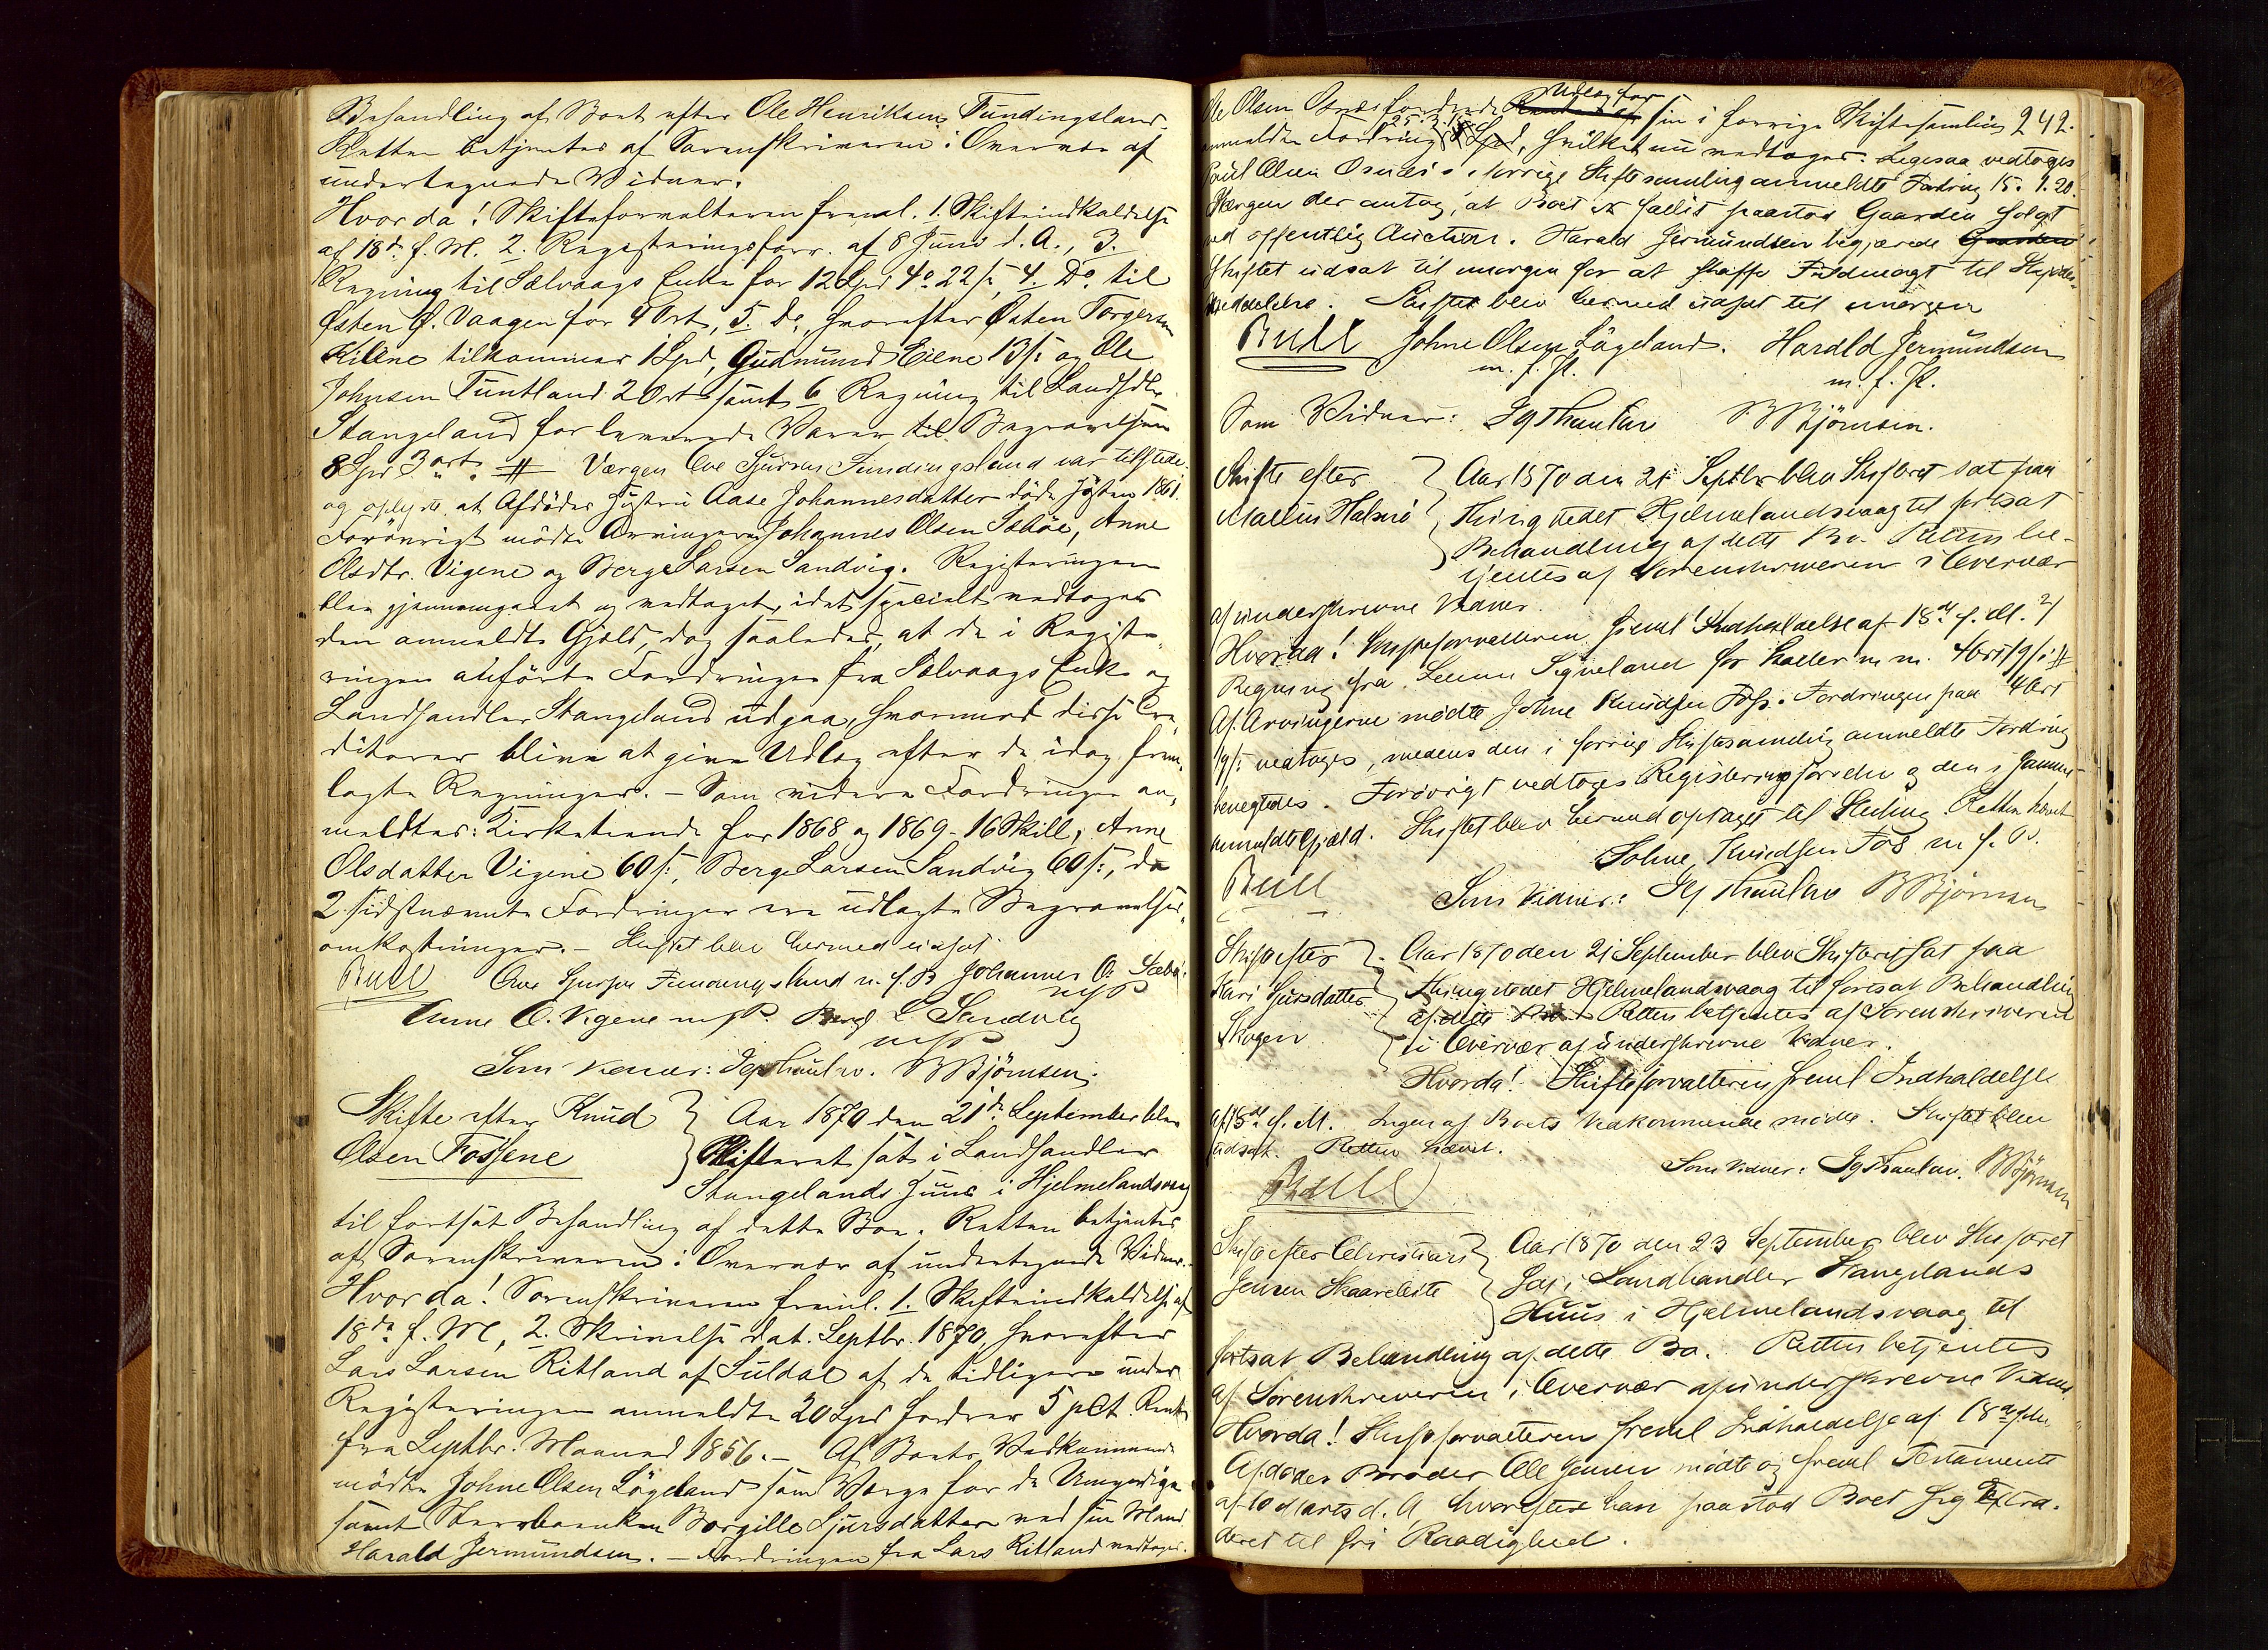 Behandling af Boet efter Ole Henriksen Fundingsland.
Retten betjentes af Sorenskriveren i Overvær af
undertegnede Vidner.
Hvorda! Skifteforvalteren freml. 1. Skifteindkaldelse
af 18de f. M. 2. Registreringsforr. af 8 Juni d. A., 3.
Regning til Sælvaags Enke for 12 Spd 4o 22 s, 4. Do. til
Østen Ø. Vaagen for 4 Ort, 5. Do, hvorefter Østen Torgersen
Kilene tilkommer 1 Spd, Gudmund Eiene 13 s: og Ole
Johnsen Tuntland 2 Ort samt 6 Regning til Landhdlr.
Stangeland for leverede Varer til Begravelsen
8 Spd 3 ort. # Værgen Ove Sjursen Fundingsland var tilstede
og oplyste, at Afdødes Hustru Aase Johannesdatter døde Høsten 1861.
Forøvrigt mødte Arvingerne Johannes Olsen Sæbøe, Anne
Olsdtr. Vigene og Berge Larsen Sandvig. Registeringen
blev gjennemgaaet og vedtaget, idet specielt vedtoges
den anmeldte Gjæld, dog saaledes, at de i Registe-
ringen anførte Fordringer fra Sælvaags Enke og
Landhandler Stangeland udgaa, hvorimod disse Cre-
ditorer blive at give Udlæg efter de idag frem-
lagte Regninger. – Som videre Fordringer an-
meldtes: Kirketiende for 1868 og 1869 - 16 Skill, Anne
Olsdatter Vigene 60 s:, Berge Larsen Sandvig 60 s:, de
2 sidstnævnte Fordringer ere udlagte Begravelses-
omkostninger. – Skiftet blev hermed udsat.
Bull Ove Sjursen Fundingsland m. f. P. Johannes O. Sæbø
mfP
Anne O. Vigene mfP. Berge L. Sandvig
mfP
Som Vidner: Jg Thaulow. B Bjørnsen.
Skifte efter Knud
Olsen Fossene
Aar 1870 den 21de September blev
Skifteret sat i Landhandler
Stangelands Huus i Hjelmelandsvaag
til fortsat Behandling af dette Boe. Retten betjentes
af Sorenskriveren i Overvær af undertegnede Vidner.
Hvorda! Sorenskriveren freml. 1. Skifteindkaldelse af
18de f. M, 2. Skrivelse dat. Septbr. 1870, hvorefter
Lars Larsen Ritland af Suldal af de tidligere under
Registeringen anmeldte 20 Spd fordrer 5 pCt. Rente
fra Septbr. Maaned 1856. – Af Boets Vedkommende
mødte Johne Olsen Løgeland som Værge for de Umyndige
samt Sterboenken Borgille Sjursdatter med sin Mand
Harald Jermundsen. – Fordringen fra Lars Ritland vedtoges.
242.
Ole Olsen Osnæs fordrede Udlæg for sin i forrige Skiftesamling
anmeldte Fordring, hvilket nu vedtoges. Ligesaa vedtoges
Poul Olsen Osnæs's i forrige Skiftesamling anmeldte Fordring 15. 1. 20.
Værgen der antog, at Boet er fallit paastod Gaarden solgt
ved offentlig Auction. Harald Jermundsen begjærede Gaarden
Skiftet udsat til imorgen for at skaffe Fuldmagt til Skjøde-
meddelelse. Skiftet blev hermed udsat til imorgen
Bull Johne Olsen Løgeland. Harald Jermundsen
m. f. P. m. f. P.
Som Vidner: Jg Thaulow B Bjørnsen.
Skifte efter
Mallin Halsnø
Aar 1870 den 21 Septbr blev Skifteret sat paa
Thingstedet Hjelmelandsvaag til fortsat
Behandling af dette Bo. Retten be-
tjentes af Sorenskriveren i Overvær
af underskrevne Vidner.
Hvorda! Skifteforvalteren freml Indkaldelse af 18de f. M. 2/
Regning fra Signeland for Klæder m m. 4 ort 19 s: #
Af Arvingerne mødte Johne Knudsen Foss. Fordringen paa 4 Ort
19 s: vedtoges, medens den i forrige Skiftesamling anmeldte Fordring
benegtedes. Forøvrigt vedtoges Registeringsforretn og den i samme
anmeldte Gjæld. Skiftet blev hermed optaget til Slutning. Retten hævet
Johne Knudsen Fos m. f. P.
Bull Som Vidner: Jg Thaulow B Bjørnsen
Skifte efter
Kari Sjursdatter
Skogen
Aar 1870 den 21 September blev Skifteret sat paa
Thingstedet Hjelmelandsvaag til fortsat Behandling
af dette Bo. Retten betjentes af Sorenskriveren
i Overvær af underskrevne Vidner.
Hvorda! Skifteforvalteren freml Indkaldelse
af 18de f. M. Ingen af Boets Vedkommende mødte. Skiftet blev
udsat. Retten hævet.
Som Vidner: Jg Thaulow. B Bjørnsen
Bull
Skifte efter Christian
Jensen Skaareleite
Aar 1870 den 23 September blev Skifteret
sat i Landhandler Stangelands
Huus i Hjelmelandsvaag til
fortsat Behandling af dette Bo. Retten betjentes
af Sorenskriveren i Overvær af underskrevne Vidner
Hvorda! Skifteforvalteren freml Indkaldelse af 18de f. M.
Afdødes Broder Ole Jensen mødte og freml Testamente
af 10 Marts d. A, hvorefter han paastod Boet sig Extra-
deret til fri Raadighed.